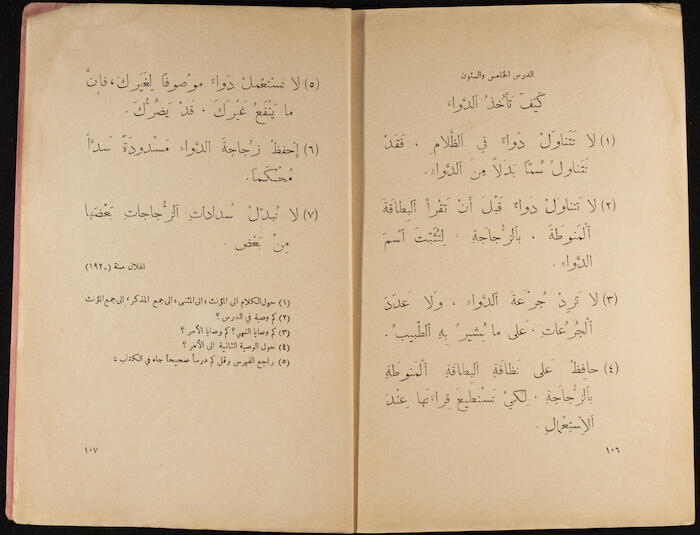 الدرس الخامس والستون
كَيْفَ تَأْخُذُ ٱلدَّواءَ
(١) لا تَتَناوَلْ دَواءً في ٱلظَّلامِ ، فَقَدْ
تَتَناوَلُ سُمًّا بَدَلاً مِنَ ٱلدَّواءِ .
(٢) لا تَتَناوَلْ دَواءً قَبْلَ أَنْ تَقْرَأَ ٱلبِطاقَةَ
ٱلْمَنوطَةَ ، بِٱلزُّجاجَةِ ، لِتُثْبِتَ ٱسْمَ
الدَّواءِ .
(٣) لا تَزِدْ جُرْعَةَ الدَّواءِ ، وَلا عَدَدَ
ٱلْجُرُعاتِ ، عَلى ما يُشيرُ بِهِ ٱلطَّبيبُ .
(٤) حافِظْ عَلى نَظافَةِ ٱلبِطاقَةِ ٱلْمَنوطَةِ
بِٱلزُّجاجَةِ ، لِكَيْ تَسْتَطيعَ قِراءَتَها عِنْدَ
ٱلاِسْتِعْمالِ .
١٠٦
(٥) لا تَسْتَعْمِلْ دَواءً مَوْصوفًا لِغَيْرِكَ ، فَإِنَّ
ما يَنْفَعُ غَيْرَكَ ، قَدْ يَضُرُّكَ .
(٦) إِحْفَظْ زُجاجَةَ الدَّواءِ مَسْدودَةً سَدًّا
مُحْكَمًا .
(٧) لا تُبَدِّلْ سُدادَاتِ ٱلزُّجاجاتِ بَعْضَها
مِنْ بَعْضٍ .
الهلال سنة (١٩٢٠)
(١) حول الكلام الى المؤنث ، الى المثنى ، الى جمع المذكر ، الى جمع المؤنث
(٢) كم وصية في الدرس ؟
(٣) كم وصايا النهي ؟ كم وصايا الأمر ؟
(٤) حول الوصية الثانية الى الأمر ؟
(٥) راجع الفهرس وقل كم درساً صحيحاً جاء في الكتاب ؟
١٠٧